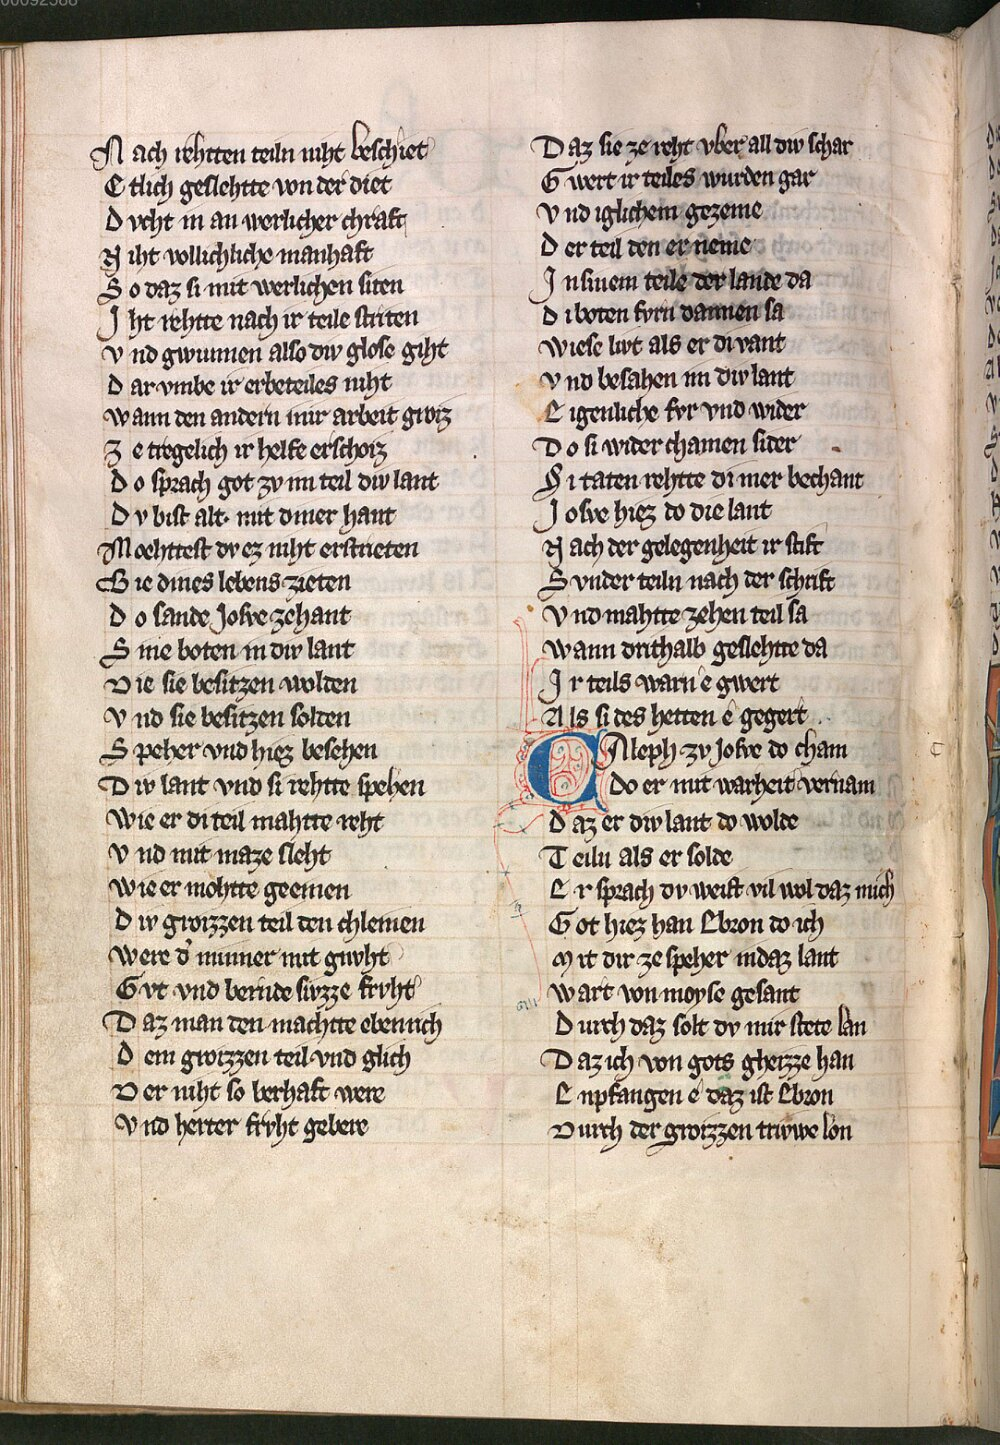 00092588
Nach rehtten teiln niht beschiet
Etlich geslehtte von der diet
Dvcht in an werlicher chraft
Niht vollichliche manhaft
So daz si mit werlichen siten
Iht rehtte nach ir teile striten
Vnd gwunnen also div glose giht
Dar vmbe ir erbeteiles niht
Wann den andern mir arbeit groz
Ze tregelich ir helfe erschoz
Do sprach got zv im teil div lant
Dv bist alt mit diner hant
Moehttest dv ez niht erstrieten
Bie dines lebens zieten
Do sande Josve zehant
Sine boten in div lant
Die sie besitzen wolden
Vnd sie besitzen solden
Speher vnd hiez besehen
Div lant vnd si rehtte spehen
Wie er di teil mahtte reht
Vnd mit maze sleht
Wie er mohtte geemen
Div groizzen teil den chleinen
Were d' minner mit gnvht
Gvt vnd bernde svzze frvht
Daz man den machtte ebenrich
Dem groizzen teil vnd glich
Der niht so berhaft were
Vnd herter frvht gebere
Daz sie ze reht vber all div schar
Gwert ir teiles wurden gar
Vnd iglichem gezeme
Der teil den er neme
In sinem teile der lande da
Di boten fvrn dannen sa
Wiese livt als er di vant
Vnd besahen im div lant
Eigenliche fvr vnd wider
Do si wider chamen sider
Si taten rehtte di mer bechant
Josve hiez do die lant
Nach der gelegenheit ir stift
Svnder teiln nach der schrift
Vnd mahtte zehen teil sa
Wann drithalb geslehtte da
Ir teils warn e gwert
Als si des hetten e gegert
Caleph zv Josve do cham
Do er mit warheit vernam
Daz er div lant do wolde
Teiln als er solde
Er sprach dv weist vil wol daz mich
Got hiez han Ebron do ich
Mit dir ze speher in daz lant
Wart von moyse gesant
Durch daz solt dv mir stete lan
Daz ich von gots gheizze han
Enpfangen e daz ist Ebron
Durch der groizzen trivwe lon
c